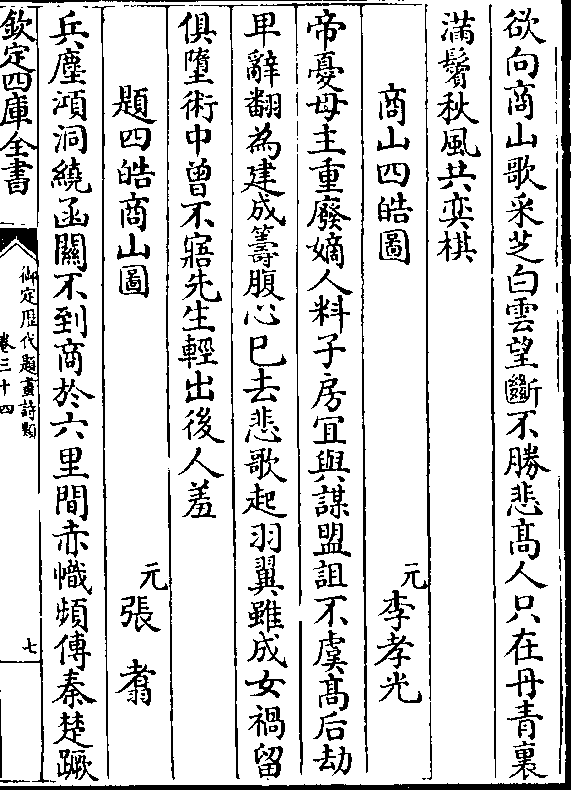 欲向商山歌采芝白雲望斷不勝悲髙人只在丹青裏
滿鬢秋風共奕棋
商山四皓圖　元李孝光
帝憂母主重廢嫡人料子房宜與謀盟詛不虞髙后劫
卑辭翻為建成籌腹心已去悲歌起羽翼雖成女禍留
俱墮術中曾不寤先生輕出後人羞
題四皓商山圖　元張翥
兵塵澒洞繞函關不到商於六里間赤幟頻傳秦楚蹶
欽定四庫全書
御定歴代題畫詩類
卷三十四
七